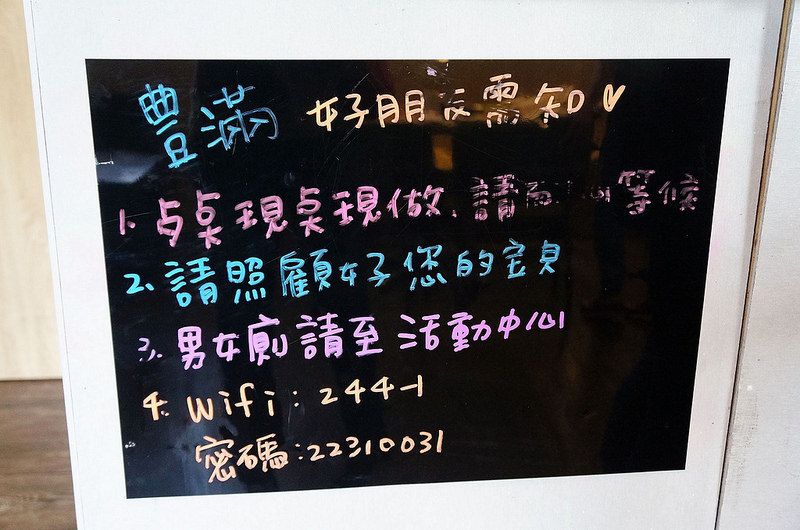 豐滿 好朋友需知♡
1. 点桌現桌現做、請耐心等候
2. 請照顧好您的宝貝
3. 男女廁請至活動中心
4. Wifi: 244-1
密碼:22310031